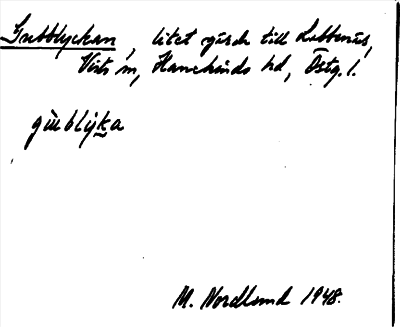 Gubblyckan, litet gärde till Lebbenäs,
Västra m, Hanekinds hd, Östg. l.
gùblỳka
M. Nordlund 1948.